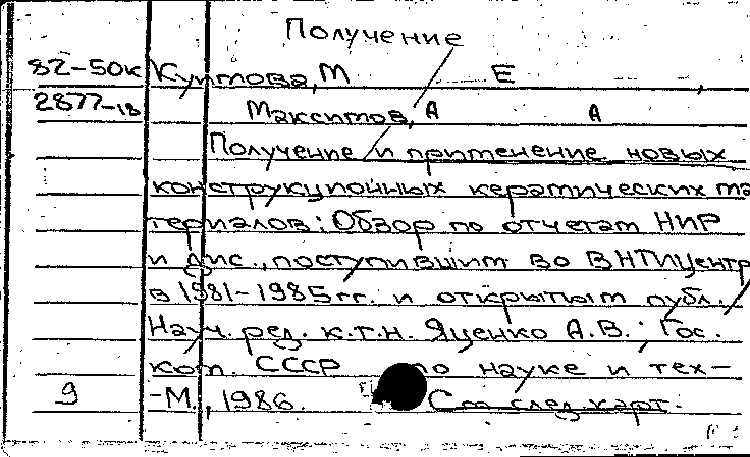 Получение
82-50к Куimова, М Е
2877-18 Максимов, А А
Получение и применение новых
конструкционных керамических ма
териалов: Обзор по отчетам НИР
и дис., поступившим во ВНТИЦентр
в 1981-1985гг. и открытым публ. /
Науч. ред. к.т.н. Яценко А.В.; Гос.
ком. СССР по науке и тех-
9 -М., 1986. См след карт.